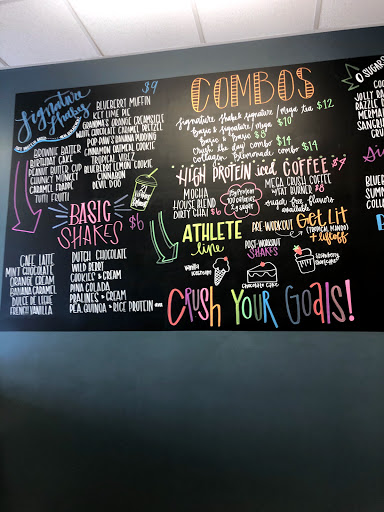 Signature Shakes $9
BLUEBERRY MUFFIN
KEY LIME PIE
GRANDMA'S ORANGE CREAMSICLE
WHITE CHOCOLATE CARAMEL PRETZEL
POP PAW'S BANANA PUDDING
CINNAMON OATMEAL COOKIE
TROPICAL VIBEZ
BLUEBERRY LEMON COOKIE
CINNABON
DEVIL DOG
BROWNIE BATTER
BIRTHDAY CAKE
PEANUT BUTTER CUP
CHUNKY MONKEY
CARAMEL FRAPPE
TUTTI FRUITTI
BASIC SHAKES $6
CAFE LATTE
MINT CHOCOLATE
ORANGE CREAM
BANANA CARAMEL
DULCE DE LECHE
FRENCH VANILLA
DUTCH CHOCOLATE
WILD BERRY
COOKIES & CREAM
PINA COLADA
PRALINES & CREAM
PEA, QUINOA & RICE PROTEIN
COMBOS
Signature Shake & signature / mega tea $12
Basic & signature / mega $10
Basic & Basic $8
Crush the day combo $14
Collagen Beautymode combo $14
HIGH PROTEIN iced COFFEE
MOCHA
HOUSE BLEND
DIRTY CHAI $6
15g PROTEIN
100 calories
2g sugar
MEGA CRUSH COFFEE
"FAT BURNER" $8
sugar free flavors
available
ATHLETE
line
PRE-WORKOUT
GET LIT
(TROPICAL MANGO)
+ liftoff
POST-WORKOUT
SHAKES
vanilla
chocolate cake
strawberry
CRUSH YOUR GOALS!
0 SUGAR